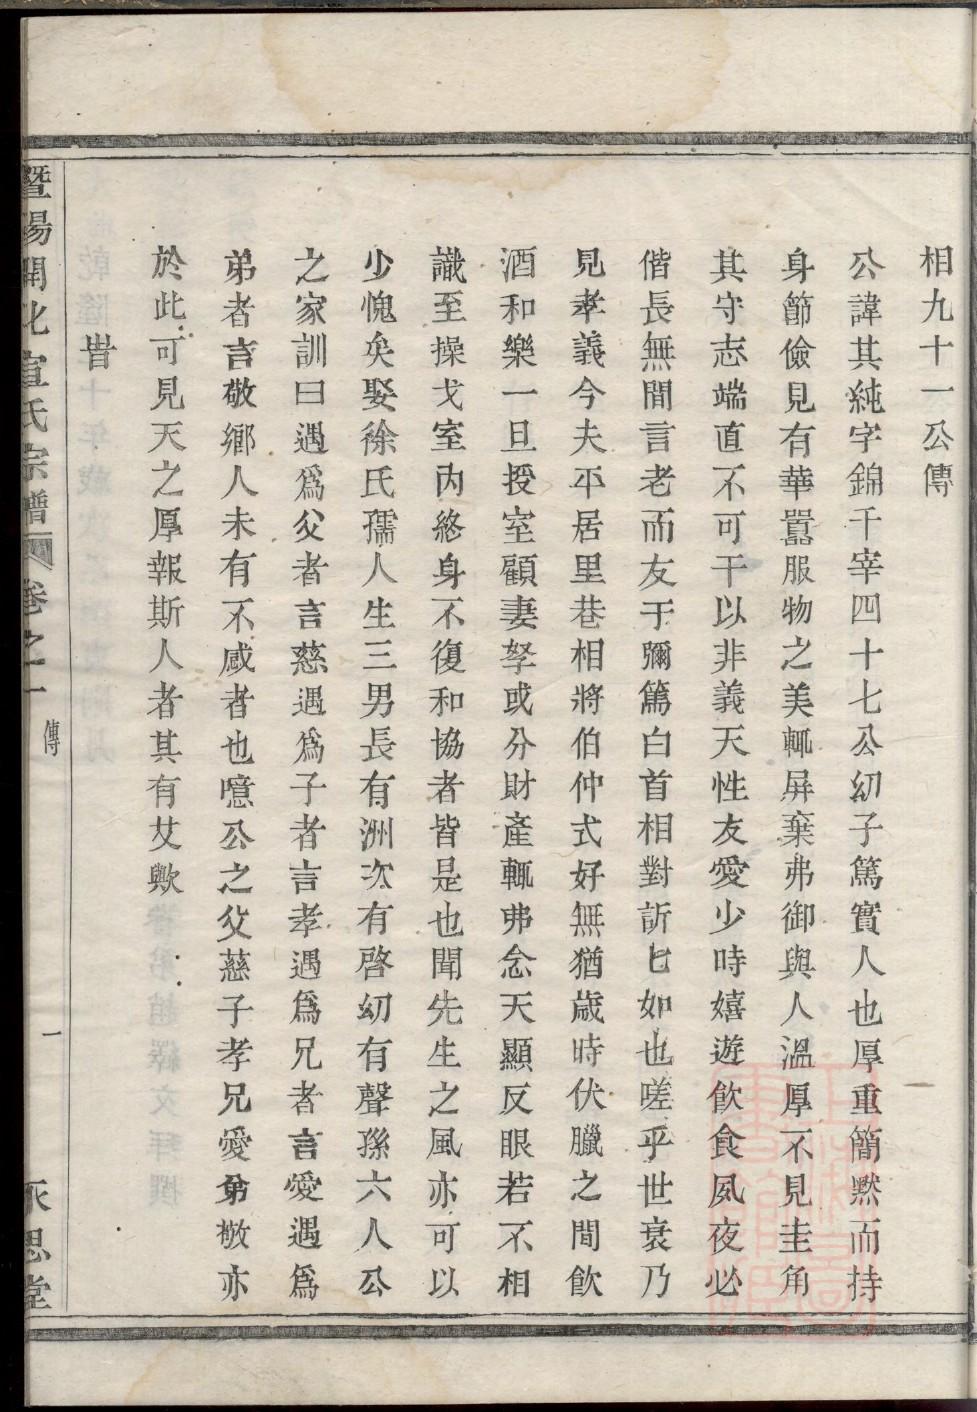 相九十一公傳
公諱其純字錦千宰四十七公幼子篤實人也厚重簡默而持
身節儉見有華囂服物之美輒屏棄弗御與人溫厚不見圭角
其守志端直不可干以非義天性友愛少時嬉遊飲食夙夜必
偕長無間言老而友于彌篤白首相對訢訢如也嗟乎世衰乃
見孝義今夫平居里巷相將伯仲式好無猶歲時伏臘之間飲
酒和樂一旦授室顧妻孥或分財產輒弗念天顯反眼若不相
識至操戈室內終身不復和協者皆是也聞先生之風亦可以
少愧矣娶徐氏孺人生三男長有洲次有啓幼有聲孫六人公
之家訓曰遇爲父者言慈遇爲子者言孝遇爲兄者言愛遇爲
弟者言敬鄉人未有不感者也噫公之父慈子孝兄愛弟敬亦
於此可見天之厚報斯人者其有艾歟
旹
暨陽開化宣氏宗譜 卷之一 傳 一 永思堂